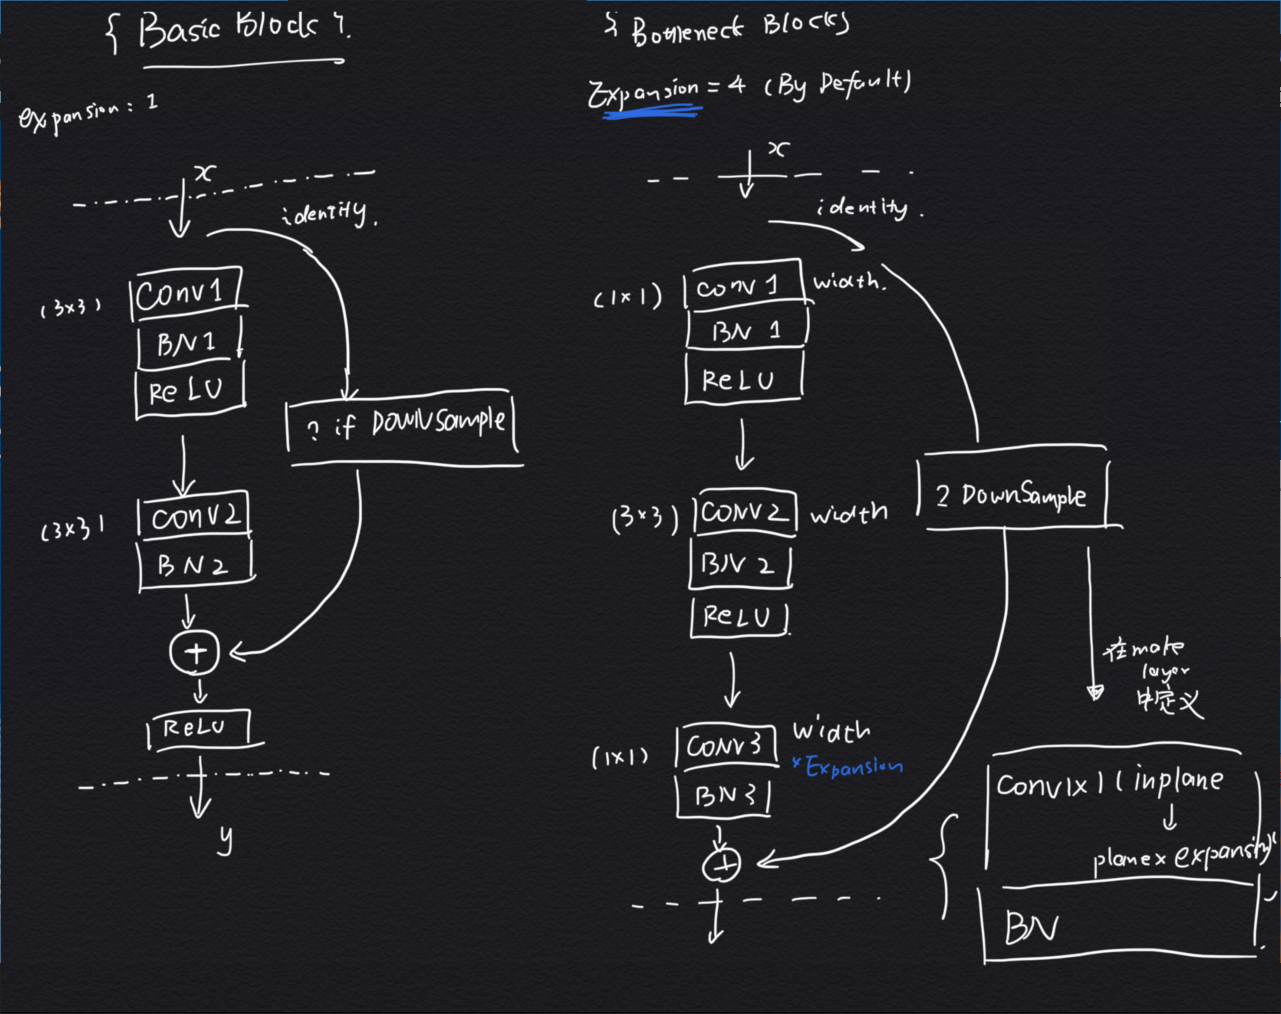 { Basic Block }.
expansion: 1
x
identity.
(3x3)
Conv1
BN1
ReLU
? if DownSample
(3x3)
Conv2
BN2
+
ReLU
y
{ Bottleneck Blocks
Expansion = 4 (By Default)
x
identity.
(1x1)
conv 1
width.
BN 1
ReLU
? DownSample
(3x3)
CONV2
width
BN 2
ReLU
在make
layer
中定义
(1x1)
CONV3
width
*Expansion
BN3
+
Conv1x1 ( inplane
↓
plane x expansion)
BN